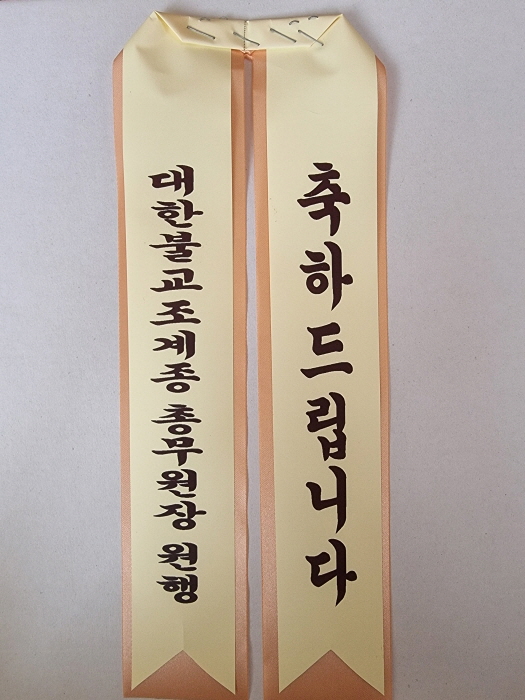 축하드립니다
대한불교조계종 총무원장 원행